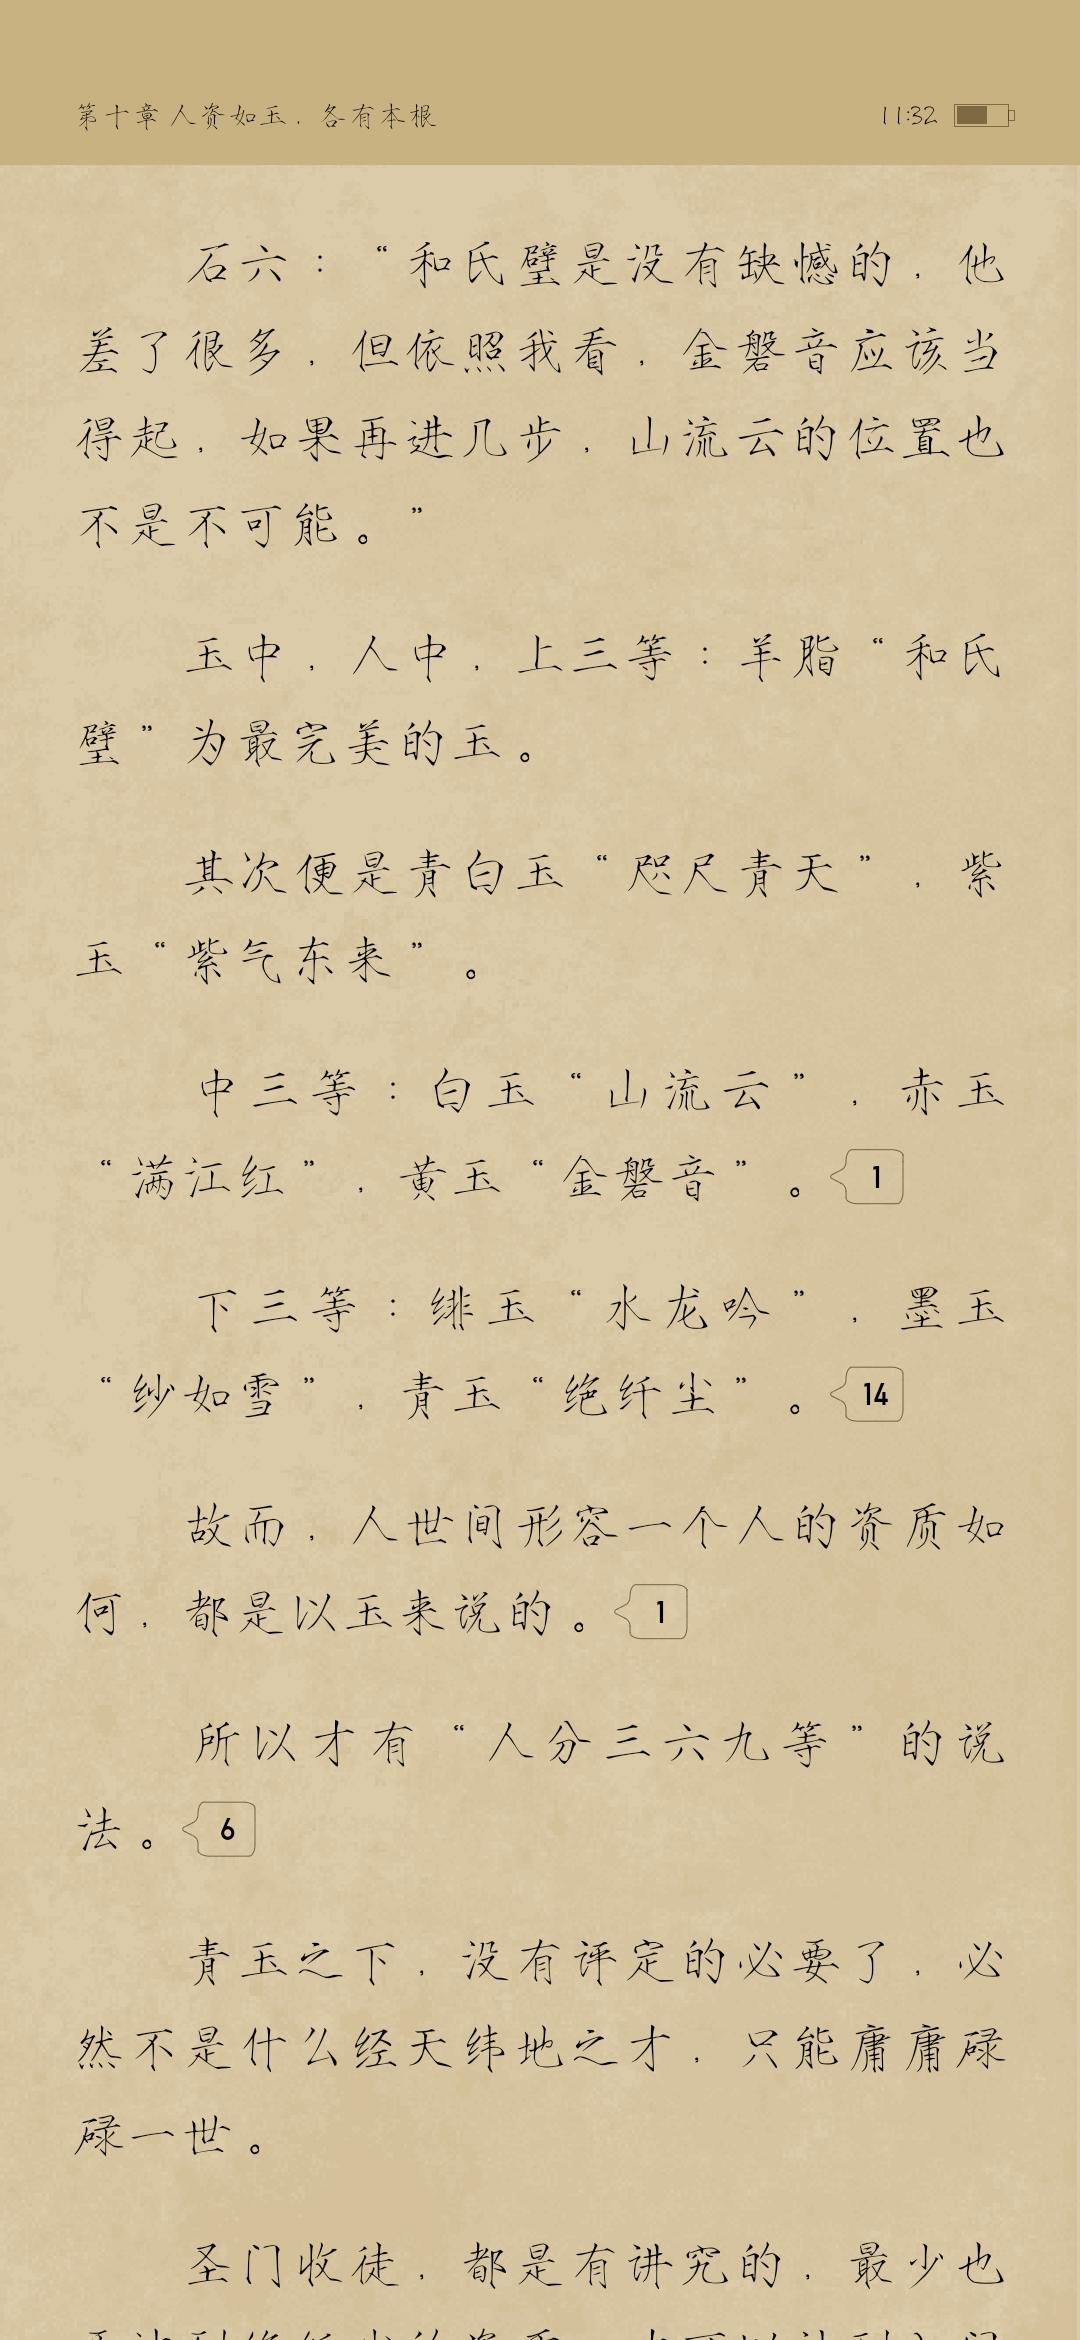 第十章 人资如玉，各有本根
11:32
石六：“和氏璧是没有缺憾的，他
差了很多，但依照我看，金磐音应该当
得起，如果再进几步，山流云的位置也
不是不可能。”
玉中，人中，上三等：羊脂“和氏
璧”为最完美的玉。
其次便是青白玉“咫尺青天”，紫
玉“紫气东来”。
中三等：白玉“山流云”，赤玉
“满江红”，黄玉“金磐音”。1
下三等：绯玉“水龙吟”，墨玉
“纱如雪”，青玉“绝纤尘”。14
故而，人世间形容一个人的资质如
何，都是以玉来说的。1
所以才有“人分三六九等”的说
法。6
青玉之下，没有评定的必要了，必
然不是什么经天纬地之才，只能庸庸碌
碌一世。
圣门收徒，都是有讲究的，最少也